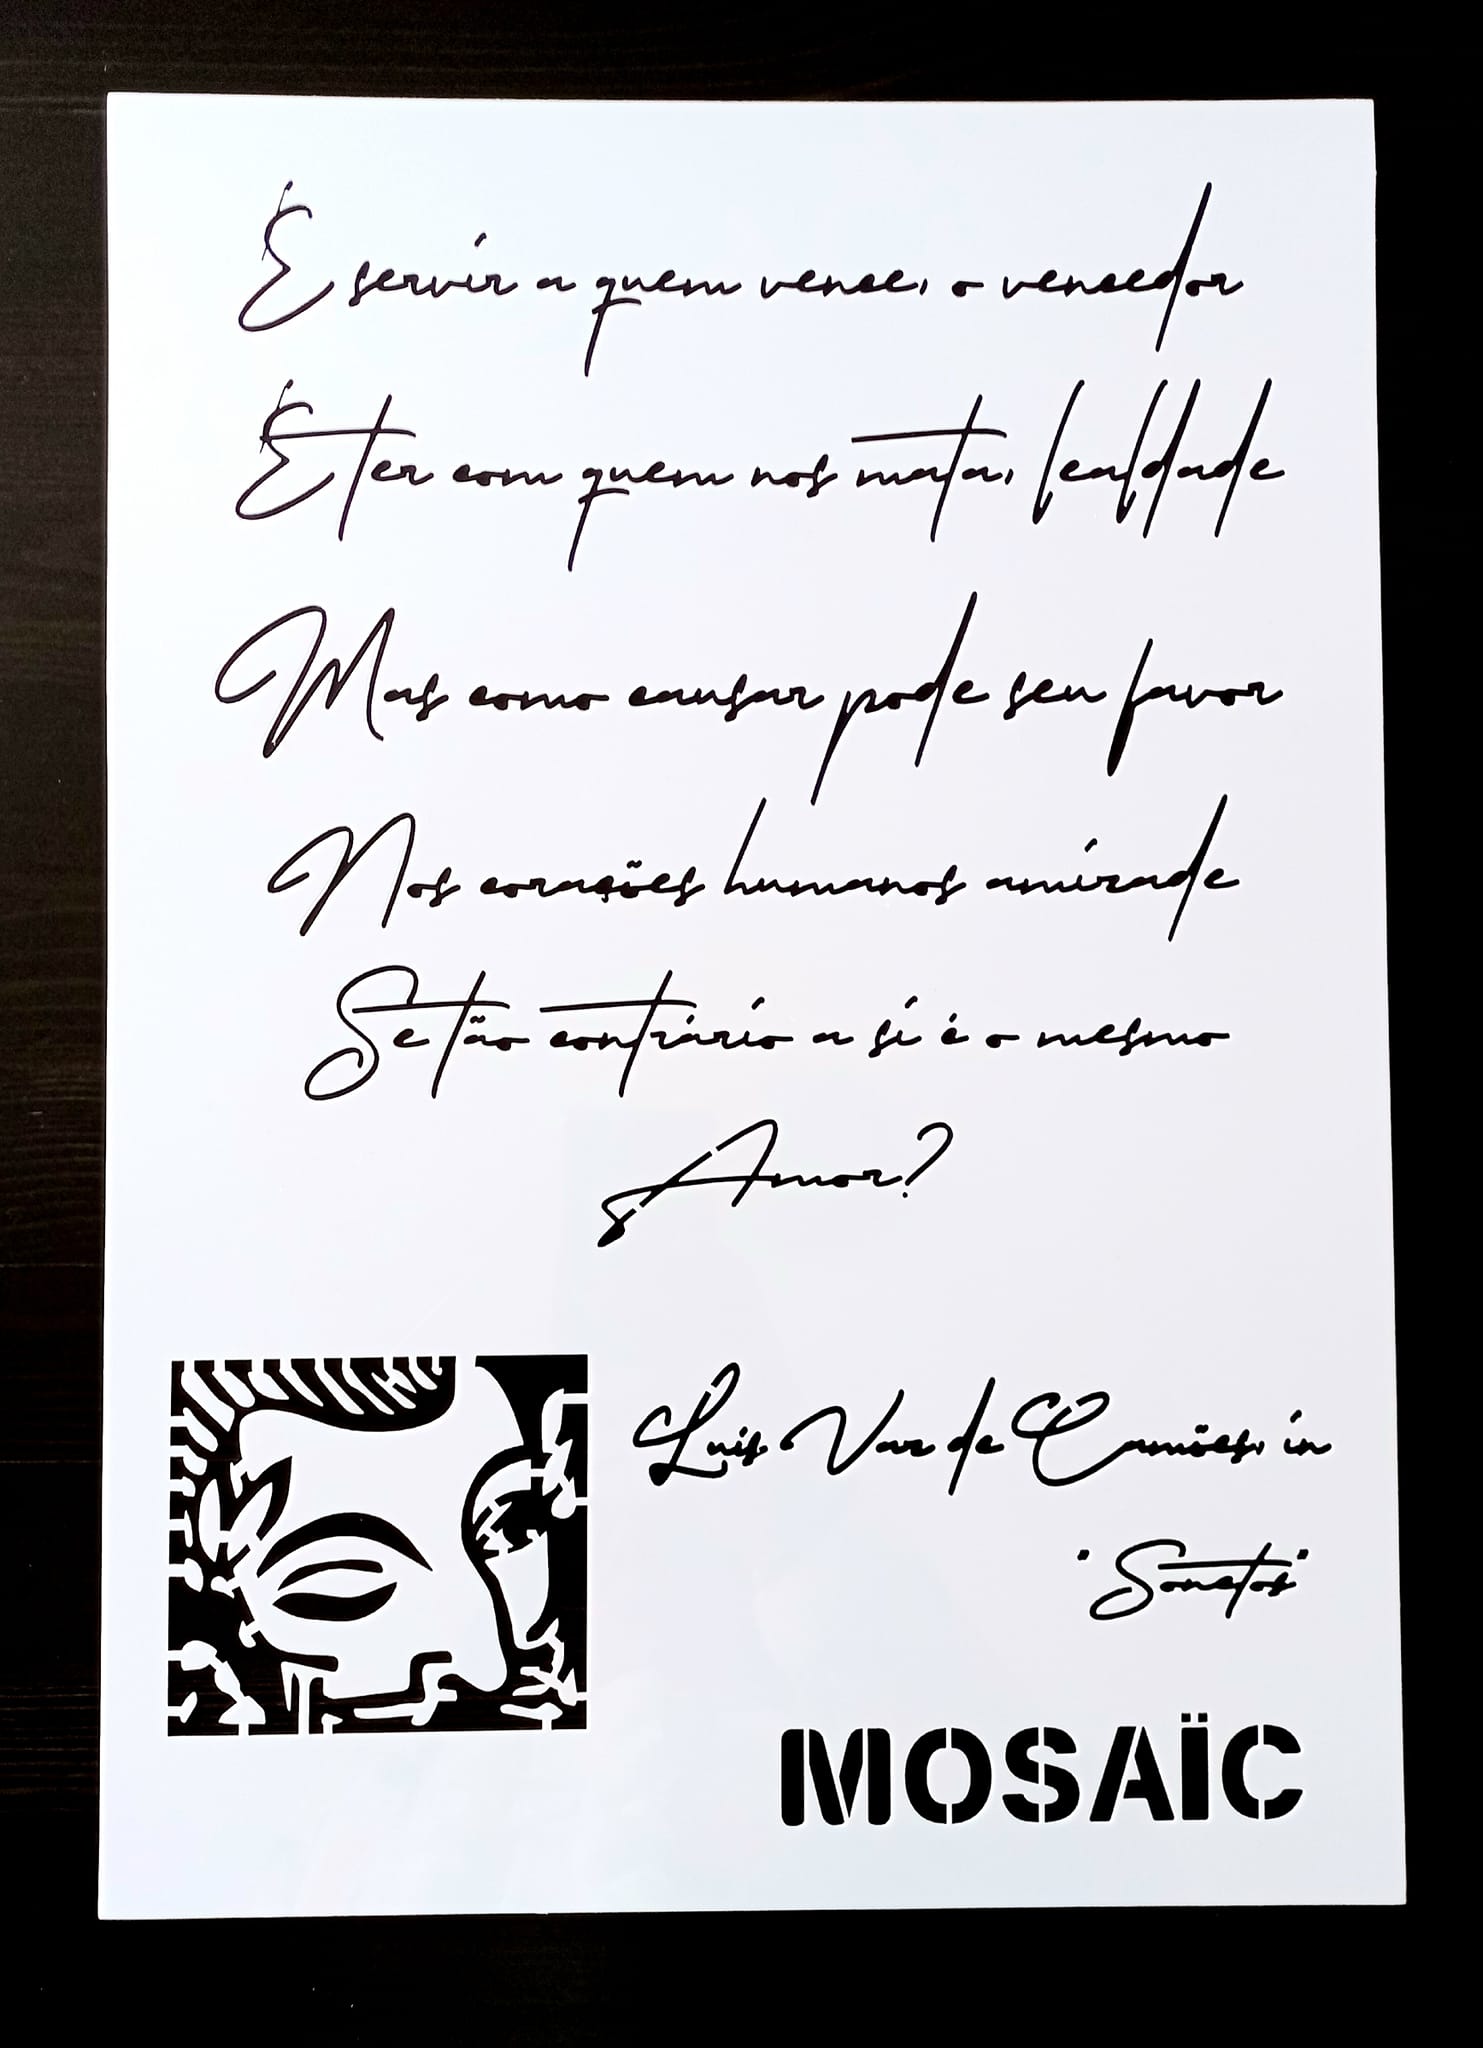 É servir a quem vence, o vencedor
É ter com quem nos mata, lealdade
Mas como causar pode seu favor
Nos corações humanos amizade
Se tão contrário a si é o mesmo
Amor?
Luis Vaz de Camões, in
"Sonetos"
MOSAÏC